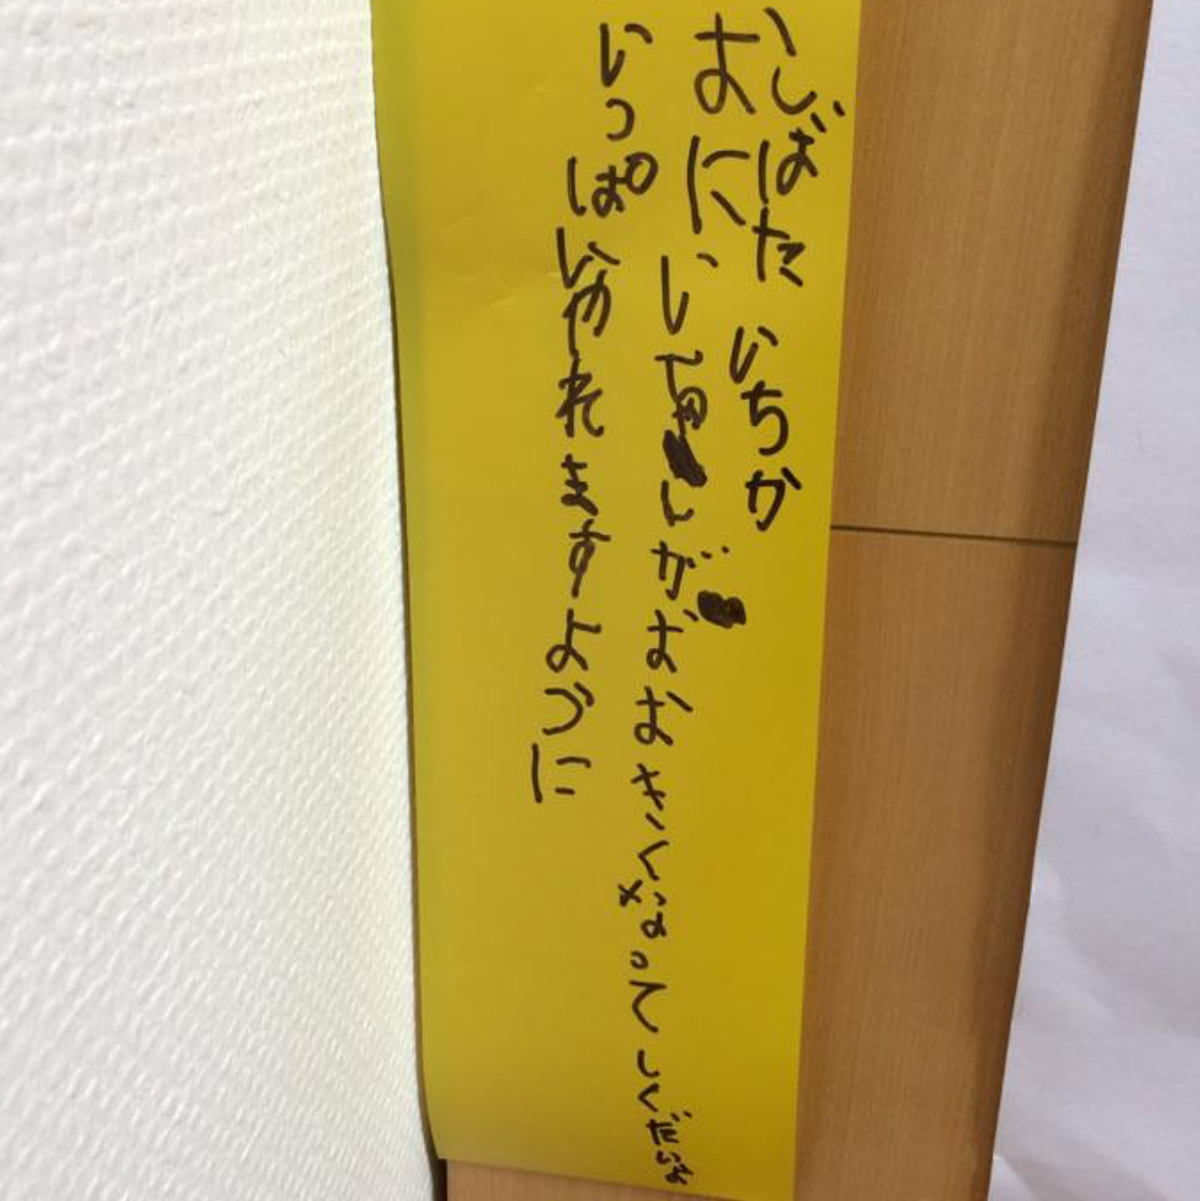 いしばた いちか
おにいちゃんがおおきくなってしくだいお
いっぱいやれますように